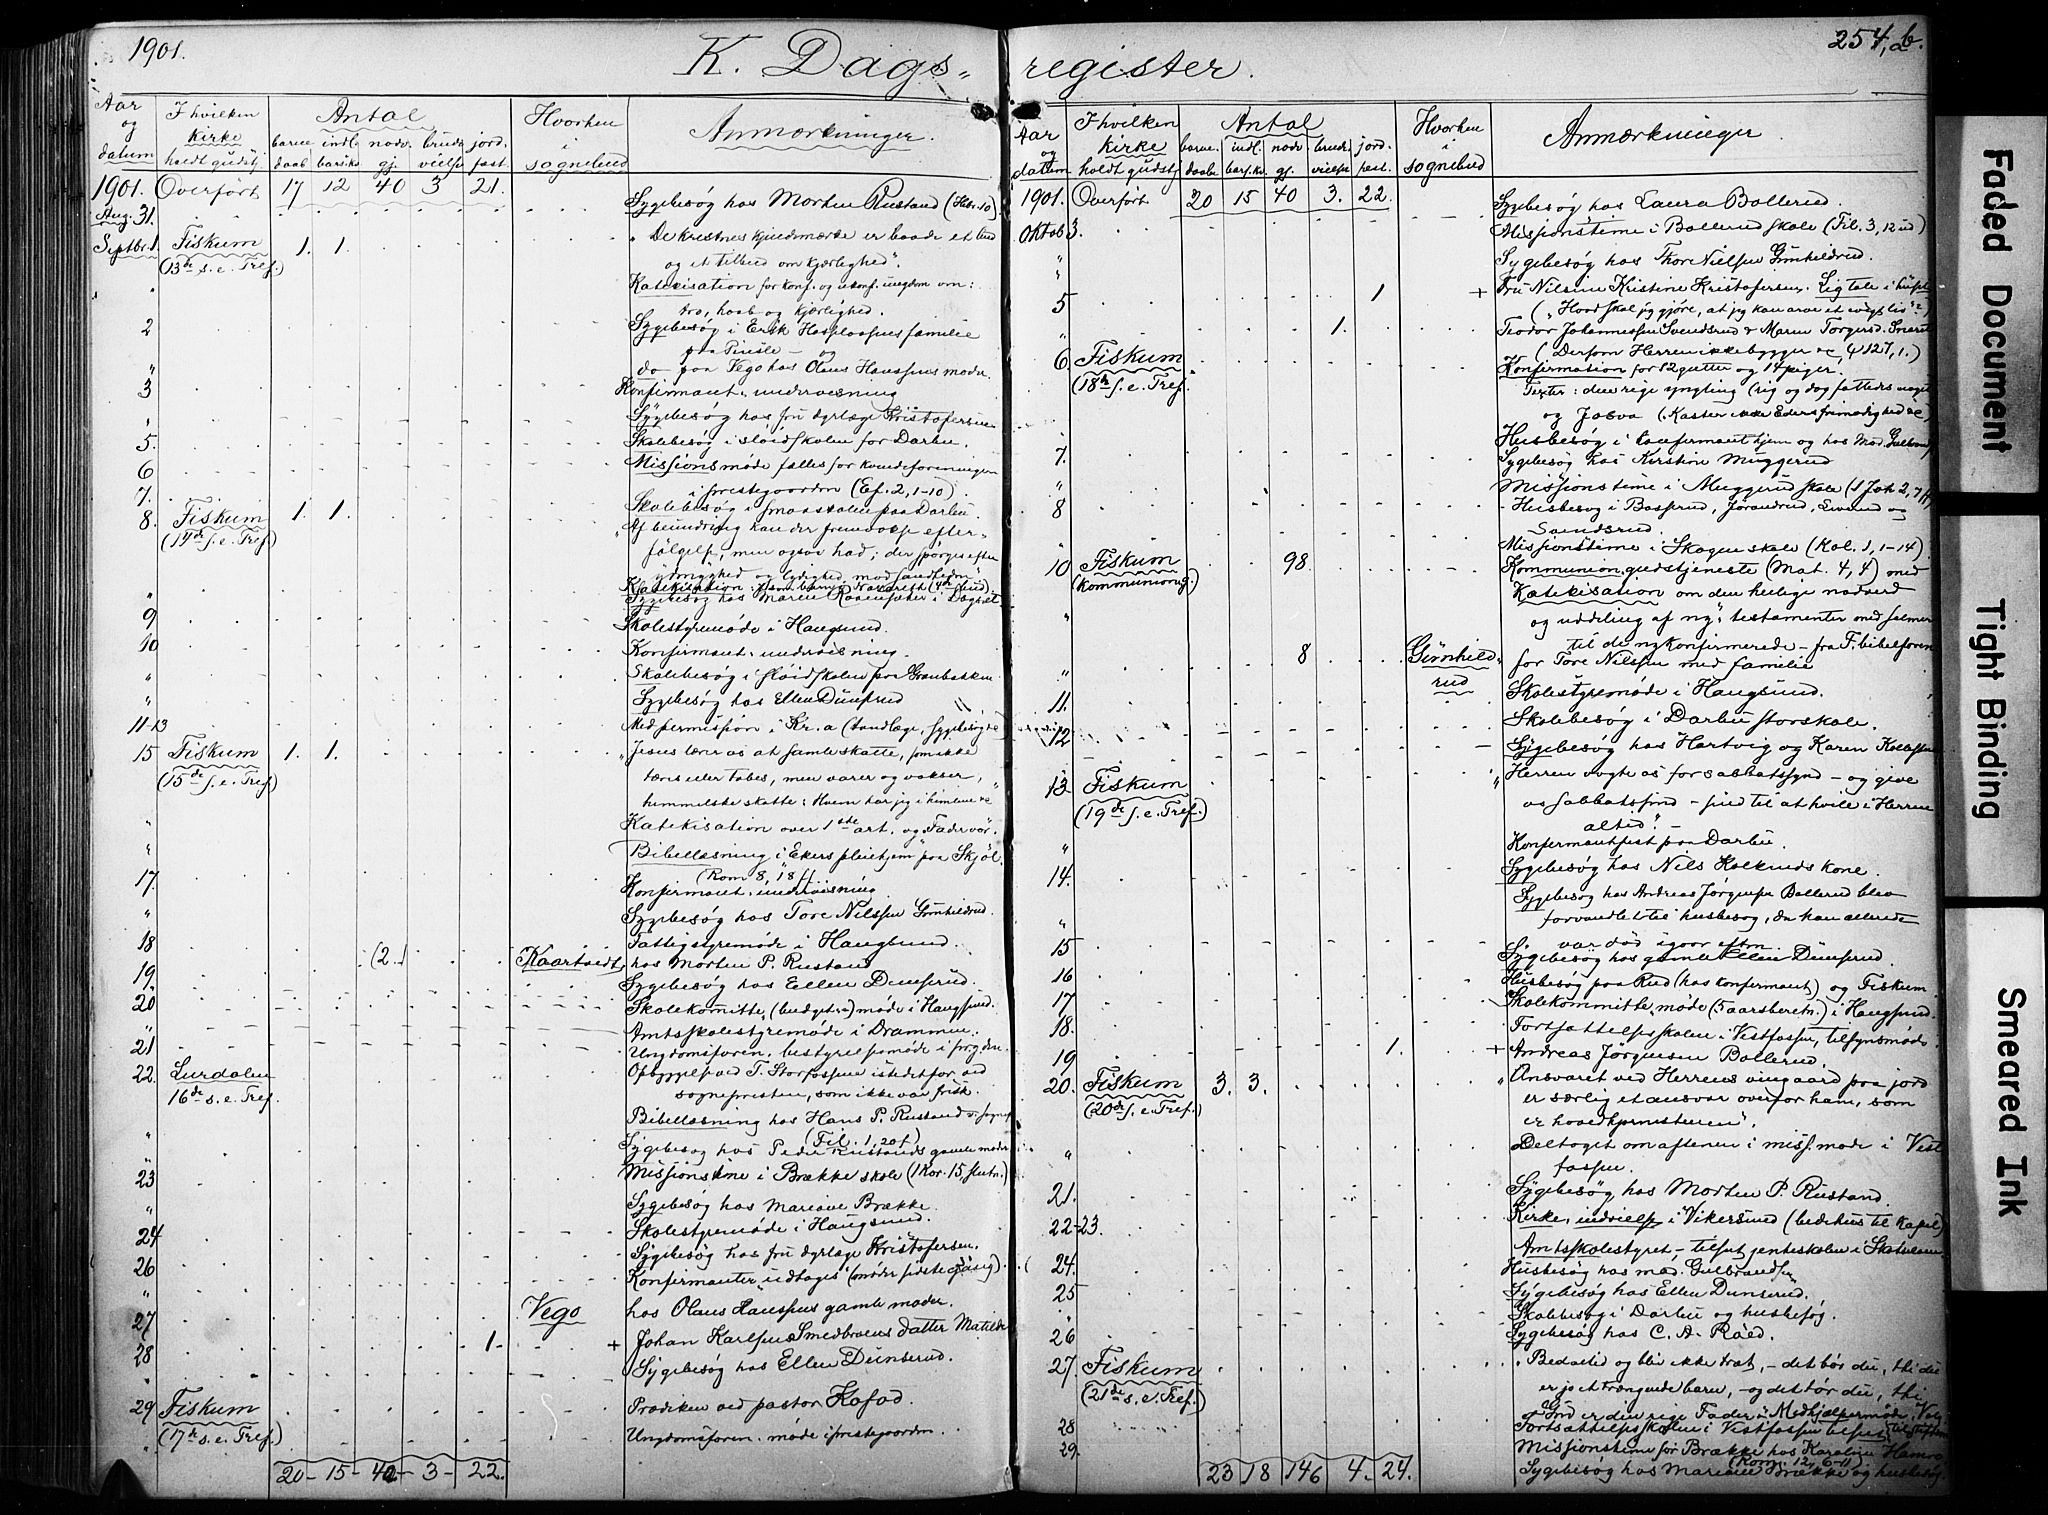 1901.
K. Dags-
Aar og datum
I hvilken kirke holdt gudstj.
Antal
barne daab
indl. barslk.
nadv. gj.
brude vielse
jord. fæst.
Hvorhen i sognebud
Anmærkninger.
1901. Overført 17 12 40 3 21.
Aug. 31. Sygebesøg hos Morten Rustand (Hebr. 10)
Septbr. 1. Fiskum 1. 1. "De kristnes kjendemærke er baade et bud
(13de s. e. Tref.) og et tilbud om kjærlighed".
" Katekisation for konf. og ukonf. ungdom om:
tro, haab og kjærlighed.
2 Sygebesøg i Erik familie
paa og
" do paa Vego hos Olaus Hanssens moder.
3 Konfirmant-undervisning
" Sygebesøg hos fru dyrlæge Kristofersen
5. Skolebesøg i sløidskolen for Darbu.
6 Missionsmøde fælles for kvindeforeningen
i prestegaarden (Ef. 2, 1-10).
7. Skolebesøg i smaaskolen paa Darbu.
8. Fiskum 1. 1. "Af beundring kan der fremvokse efter-
(14de s. e. Tref.) følgelse, men ogsaa had; der spørges efter
ydmyghed og lydighed mod sandheden"
" Katekisation:
" Sygebesøg hos Maren
9 Skolestyremøde i Haugsund.
10 Konfirmant-undervisning.
" Skolebesøg i sløidskolen paa Grønbakken
" Sygebesøg hos Ellen Dunserud
11-13 Med permission i Kr.a (tandlæge, sygebesøg &c
15 Fiskum 1. 1. "Jesus lærer os at samle skatte, som ikke
(15de s. e. Tref.) tæres eller tabes, men varer og vokser,
himmelske skatte: Hvem har jeg i himlene &c"
" Katekisation over 1ste art. og Fader vor.
" Bibellæsning i "Ekers pleiehjem" paa Skjøl.
(Rom 8, 18 ff)
17. Konfirmant-undervisning
" Sygebesøg hos Tore Nilssen Gunhildrud.
18 Fattigstyremøde i Haugsund.
19 (2.) Kaartvedt, hos Morten P. Rustand
20 Sygebesøg hos Ellen Dunserud.
" Skolekomitte, (budget-) møde i Haugsund.
" Amtsskolestyremøde i Drammen.
21 Ungdomsforen. bestyrelsesmøde i prgden.
22. Lurdalen Opbyggelse ved T. Storfossen istedetfor ved
16de s. e. Tref. sognepresten, som ikke var frisk.
" Bibellæsning hos Hans P. Rustand
(Fil. 1, 20 f)
" Sygebesøg hos Peder Rustands gamle moder
23 Missionstime i Brække skole (1 Kor. 15, slutn.)
" Sygebesøg hos Mariane Brække
24 Skolestyremøde i Haugsund.
" Sygebesøg hos fru dyrlæge Kristofersen.
26 Konfirmanter udtages (møder sidste gang).
" Vego hos Olaus Hanssens gamle moder.
27 1. + Johan Karlsens Smedbraatens datter Matilde
28 Sygebesøg hos Ellen Dunserud.
29 Fiskum Prædiken ved pastor Kofod.
(17de s. e. Tref.)
" Ungdomsforen. møde i prestegaarden.
20- 15- 42- 3- 22.
register.
254, b.
Aar og datum
I hvilken kirke holdt gudstj.
Antal
barne daab
indl. barslk.
nadv. gj.
brude vielse
jord. fæst.
Hvorhen i sognebud
Anmærkninger
1901. Overført 20 15 40 3. 22.
Oktob. 3. Sygebesøg hos Laura Bollerud.
Missionstime i Bollerud skole (Fil. 3, 12 ud)
" Sygebesøg hos Thore Nielsen Gunhildrud
5 1 + Fru Nilsine Kristine Kristofersen. Ligtale i huset
("Hvad skal jeg gjøre, at jeg kan arve et evigt liv"?)
" 1. Teodor Johannessen Svendsrud & Maren Torgersd.
(Dersom Herren ikke bygger &c, ψ 127, 1.)
6. Fiskum Konfirmation for 12 gutter og 14 piger.
(18de s. e. Tref.) Texter: den rige yngling (rig og dog fattedes noget)
og Josva (Kaster ikke Eders frimodighed &c)
7. Husbesøg i konfirmanthjem og hos Mad. Gulbrands
" Sygebesøg hos Kirstine Muggerud
8 Missionstime i Muggerud skole (1 Joh 2, 7 ff)
Husbesøg i Basserud, Jørandrud, og
Sandsrud.
" Missionstime i Skogen skole (Kol. 1, 1-14)
10 Fiskum 98 Kommunionsgudstjeneste (Mat. 4, 4) med
(Kommunionsg.) Katekisation om den hellige nadverd
" og uddeling af ny-testamenter med salmer
til de nykonfirmerede - fra F. bibelforen
" 8 Gunhild-rud for Tore Nilssen med familie
11. Skolestyremøde i Haugsund.
12 Skolebesøg i Darbu storskole.
Sygebesøg hos Hartvig og Karen
13 Fiskum "Herren vogte os for sabbatssynd - og give
(19de s. e. Tref.) os sabbatssind - sind til at hvile i Herren
altid". -
" Konfirmantfest paa Darbu.
14. Sygebesøg hos Nils Kolknuds kone.
Sygebesøg hos Andreas Jørgensen Bollerud blev
forvandlet til husbesøg, da han allerede
var død igaar eftm.
15 Sygebesøg hos gamle Ellen Dunserud.
16 Husbesøg paa Rud (hos konfirmant) og Fiskum.
17 Skolekommitte, møde (5 aarsberetn.) i Haugsund.
18. Fortsættelsesskolen i Vestfossen, tilsynsmøde
19 1. + Andreas Jørgensen Bollerud.
20. Fiskum 3. 3. "Ansvaret ved Herrens vingaard paa jord
(20de s. e. Tref.) er særlig et ansvar overfor ham, som
er hovedhjørnestenen".
" Deltaget om aftenen i miss. møde i Vest-
fossen.
21. Sygebesøg hos Morten P. Rustand.
22-23. Kirke-indvielse i Vikersund (bedehus til kapel)
24. Amtsskolestyret - tilsyn, jenteskolen i
Husbesøg hos mad. Gulbrandsen
25 Sygebesøg hos Ellen Dunserud.
" Skolebesøg i Darbu og husbesøg.
26 Sygebesøg hos C. A. Røed.
27. Fiskum "Bed altid og bliv ikke træt, - det bør du, thi du
(21de s. e. Tref.) er jo et trængende barn, - og det tør du, thi
Gud er den rige Fader". Medhjælpermøde.
28 Fortsættelsesskolen i Vestfossen tilsyn
29. Missionstime for Brække hos Karoline
(Rom. 12, 6-11).
Sygebesøg hos Mariane Brække og husbesøg
23 18 146 4. 24.
Faded Document
Tight Binding
Smeared Ink